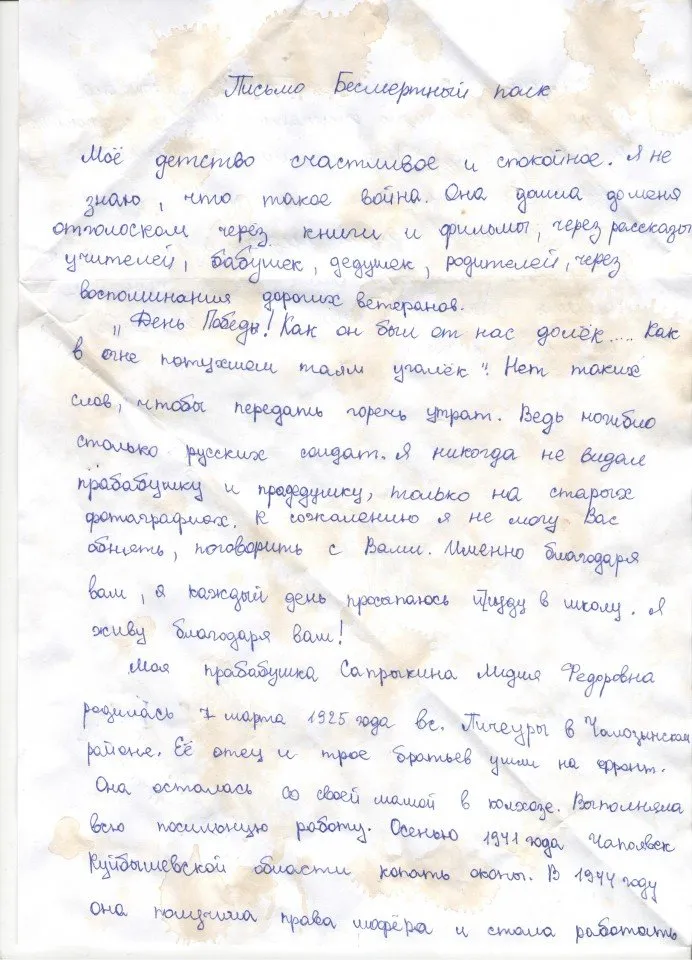 Письмо Бесмертный полк
Моё детство счастливое и спокойное. Я не
знаю, что такое война. Она дошла до меня
отголоском через книги и фильмы, через рассказы
учителей, бабушек, дедушек, родителей, через
воспоминания дорогих ветеранов.
„День Победы! Как он был от нас далёк.... Как
в огне потухшем таял уголёк". Нет таких
слов, чтобы передать горечь утрат. Ведь погибло
столько русских солдат. Я никогда не видал
прабабушку и прадедушку, только на старых
фотографиях. К сожалению я не могу Вас
обнять, поговорить с Вами. Именно благодаря
вам, я каждый день просыпаюсь иду в школу. Я
живу благодаря вам!
Моя прабабушка Сапрыкина Лидия Федоровна
родилась 7 марта 1925 года в с. Пичеуры в
районе. Её отец и трое братьев ушли на фронт.
Она осталась со своей мамой в колхозе. Выполняла
всю посильную работу. Осенью 1941 года Чапаевск
Куйбышевской области копать окопы. В 1944 году
она получила права шофёра и стала работать